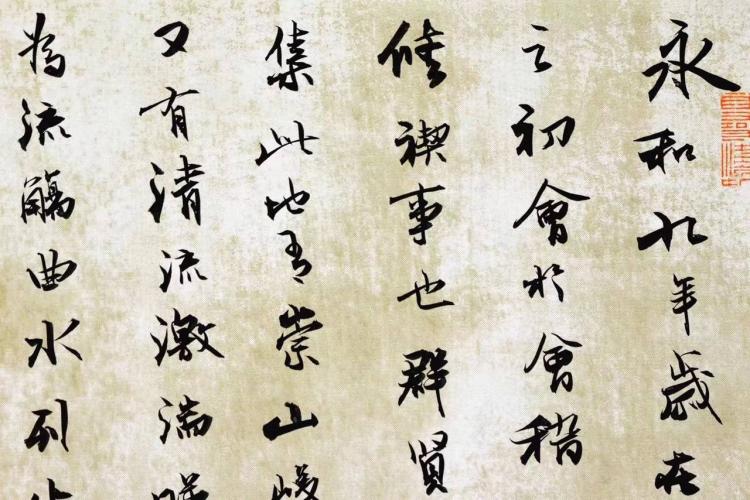 永和九年歲在
之初會於會稽
脩禊事也群賢
集此地有崇山峻
又有清流激湍暎
為流觴曲水列